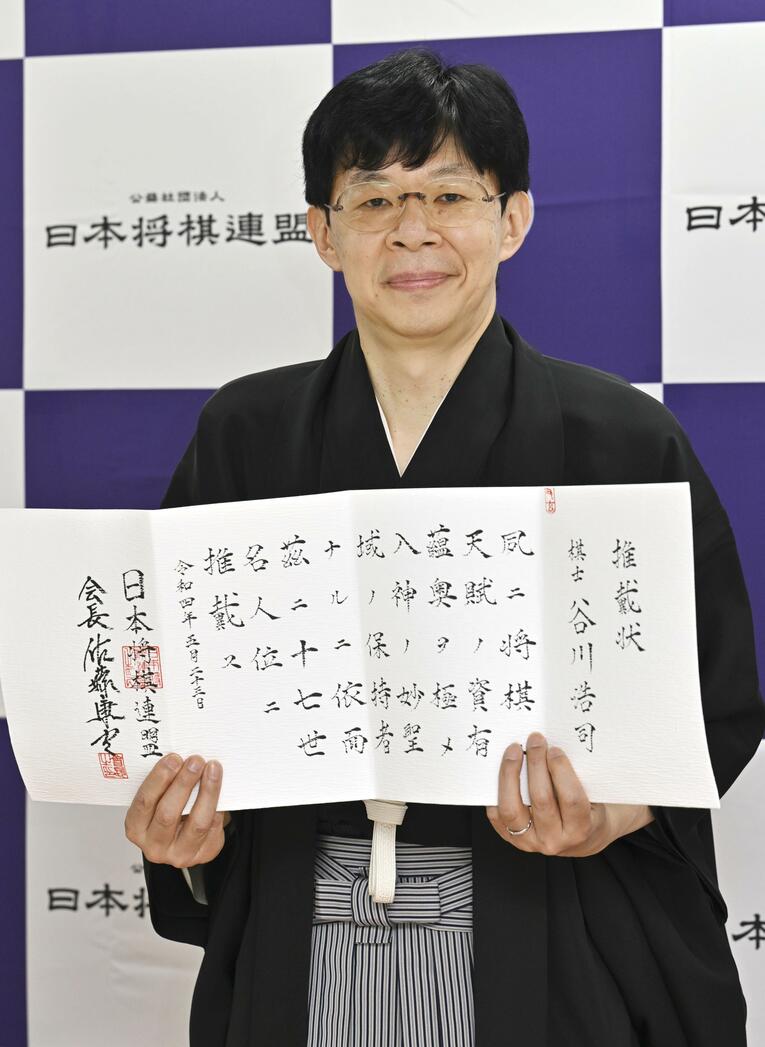 公益社団法人
日本将棋連盟
日本
推戴状
棋士 谷川浩司
夙ニ将棋
天賦ノ資有
蘊奥ヲ極メ
入神ノ妙聖
域ノ保持者
ナルニ依而
茲ニ十七世
名人位ニ
推戴ス
令和四年五月二十三日
日本将棋連盟
会長 佐藤康光
日本将
本